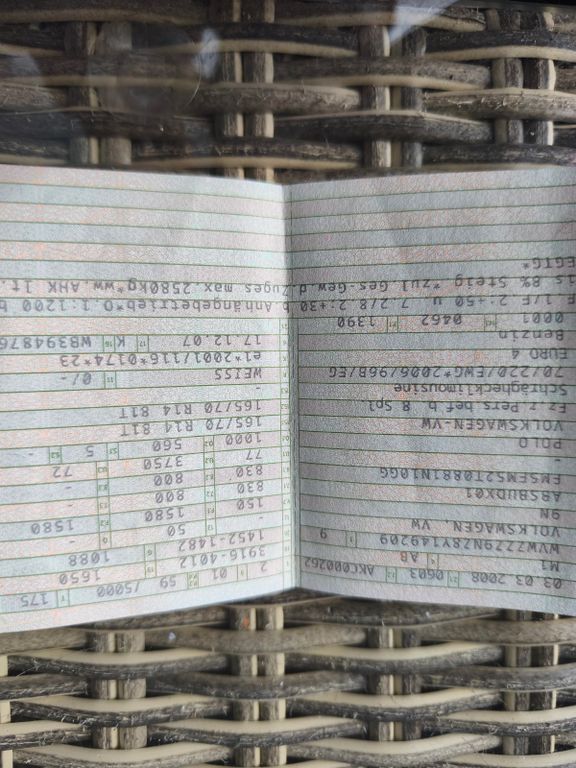 03 03 2008 0603 AKC000262
M1 AB
WVWZZZ9NZ8Y149209 9
VOLKSWAGEN, VW
9N
ABSBUDX01
POLO
VOLKSWAGEN-VW
Fz.Pers.bef.b. 8 Spl
Schräghecklimousine
-
70/220/EWG*2006/96B/EG
EURO 4
Benzin
0001 0462 1390
F.1/F.2:+50 u.7.2/8.2:+30 b.Anhängebetrieb*O.1:1200 b
is 8% Steig.*zul.Ges.Gew.d.Zuges max.2580kg*ww.AHK lt.
EGTG*
2 01 59 /5000 175
3916-4012 1650
1452-1482 1088
- 50 -
150 1580 1580
830 800 -
830 800 -
77 3750 72
1000 560 5 -
165/70 R14 81T
165/70 R14 81T
-
WEISS 0/-
e1*2001/116*0174*23
17.12.07 K WB394876